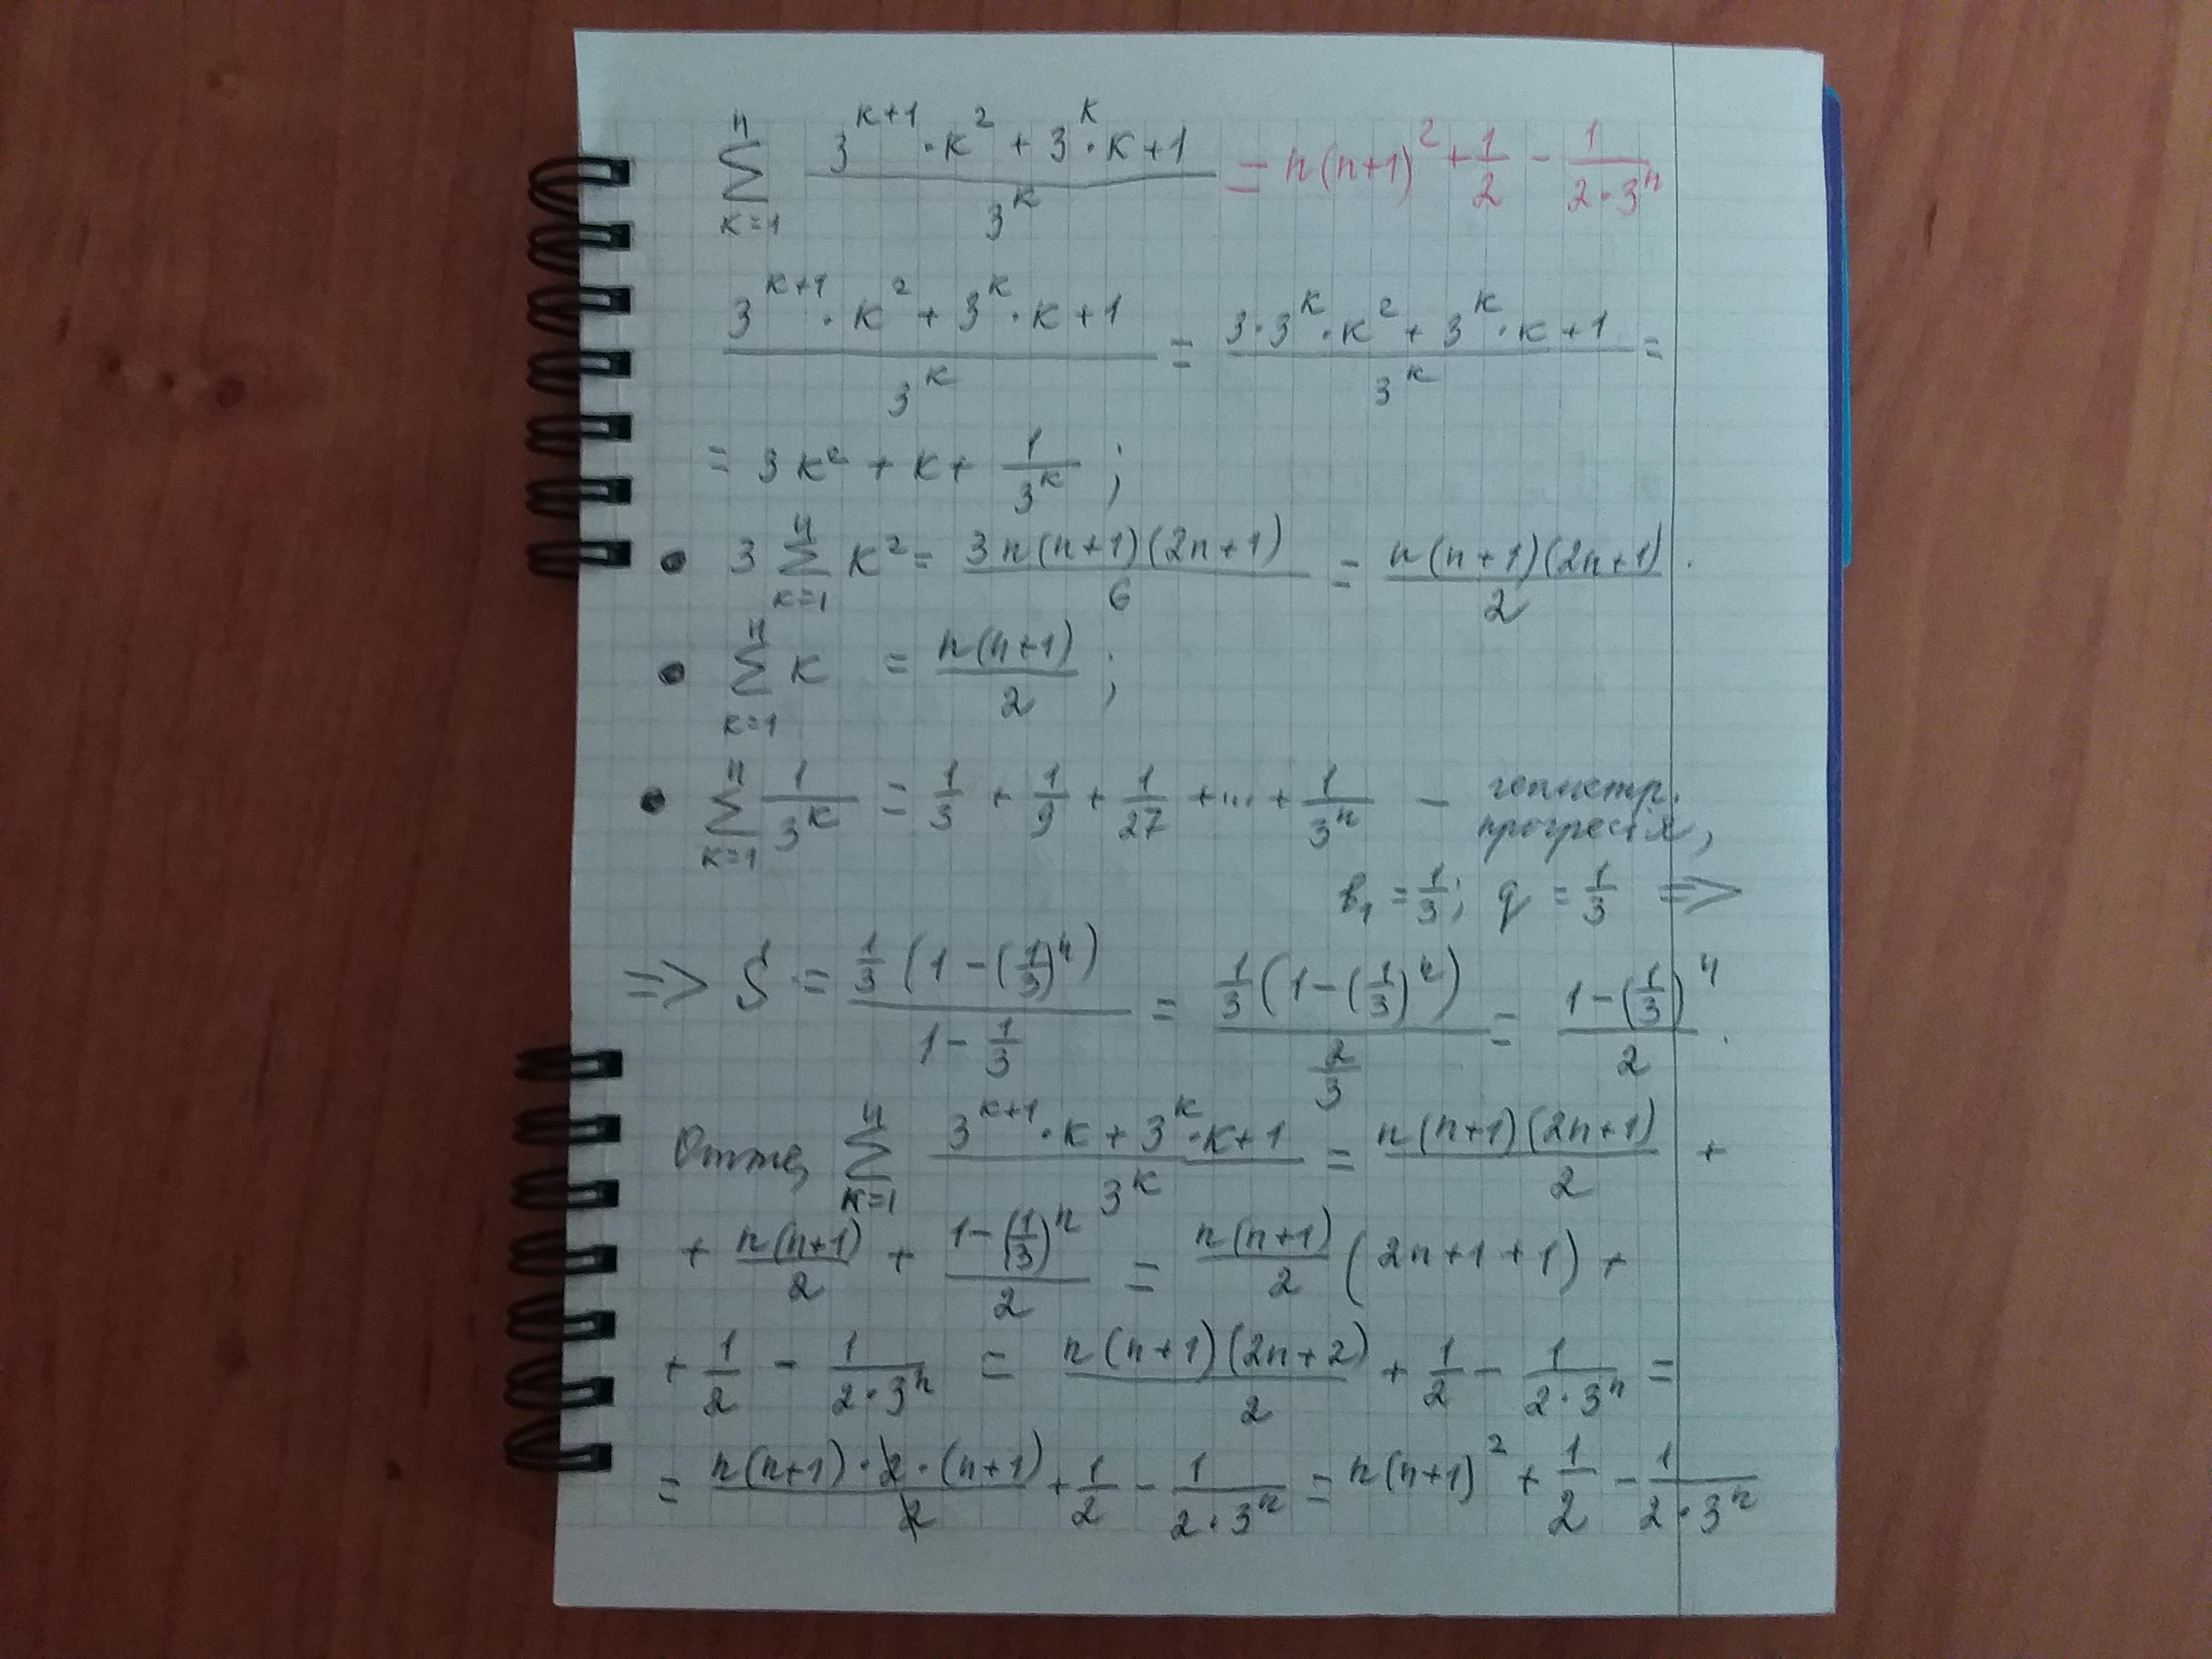 $\sum_{k=1}^{n} \frac{3^{k+1} \cdot k^2 + 3^k \cdot k + 1}{3^k} = n(n+1)^2 + \frac{1}{2} - \frac{1}{2 \cdot 3^n}$
$\frac{3^{k+1} \cdot k^2 + 3^k \cdot k + 1}{3^k} = \frac{3 \cdot 3^k \cdot k^2 + 3^k \cdot k + 1}{3^k} =$
$= 3k^2 + k + \frac{1}{3^k};$
• $3 \sum_{k=1}^{n} k^2 = \frac{3n(n+1)(2n+1)}{6} = \frac{n(n+1)(2n+1)}{2}.$
• $\sum_{k=1}^{n} k = \frac{n(n+1)}{2};$
• $\sum_{k=1}^{n} \frac{1}{3^k} = \frac{1}{3} + \frac{1}{9} + \frac{1}{27} + \ldots + \frac{1}{3^n}$ – геометр. прогресія,
$b_1 = \frac{1}{3}; q = \frac{1}{3} \Rightarrow$
$\Rightarrow S = \frac{\frac{1}{3}(1 - (\frac{1}{3})^n)}{1 - \frac{1}{3}} = \frac{\frac{1}{3}(1 - (\frac{1}{3})^n)}{\frac{2}{3}} = \frac{1 - (\frac{1}{3})^n}{2}.$
Отже, $\sum_{k=1}^{n} \frac{3^{k+1} \cdot k + 3^k \cdot k + 1}{3^k} = \frac{n(n+1)(2n+1)}{2} +$
$+ \frac{n(n+1)}{2} + \frac{1 - (\frac{1}{3})^n}{2} = \frac{n(n+1)}{2}(2n+1+1) +$
$+ \frac{1}{2} - \frac{1}{2 \cdot 3^n} = \frac{n(n+1)(2n+2)}{2} + \frac{1}{2} - \frac{1}{2 \cdot 3^n} =$
$= \frac{n(n+1) \cdot 2 \cdot (n+1)}{2} + \frac{1}{2} - \frac{1}{2 \cdot 3^n} = n(n+1)^2 + \frac{1}{2} - \frac{1}{2 \cdot 3^n}$